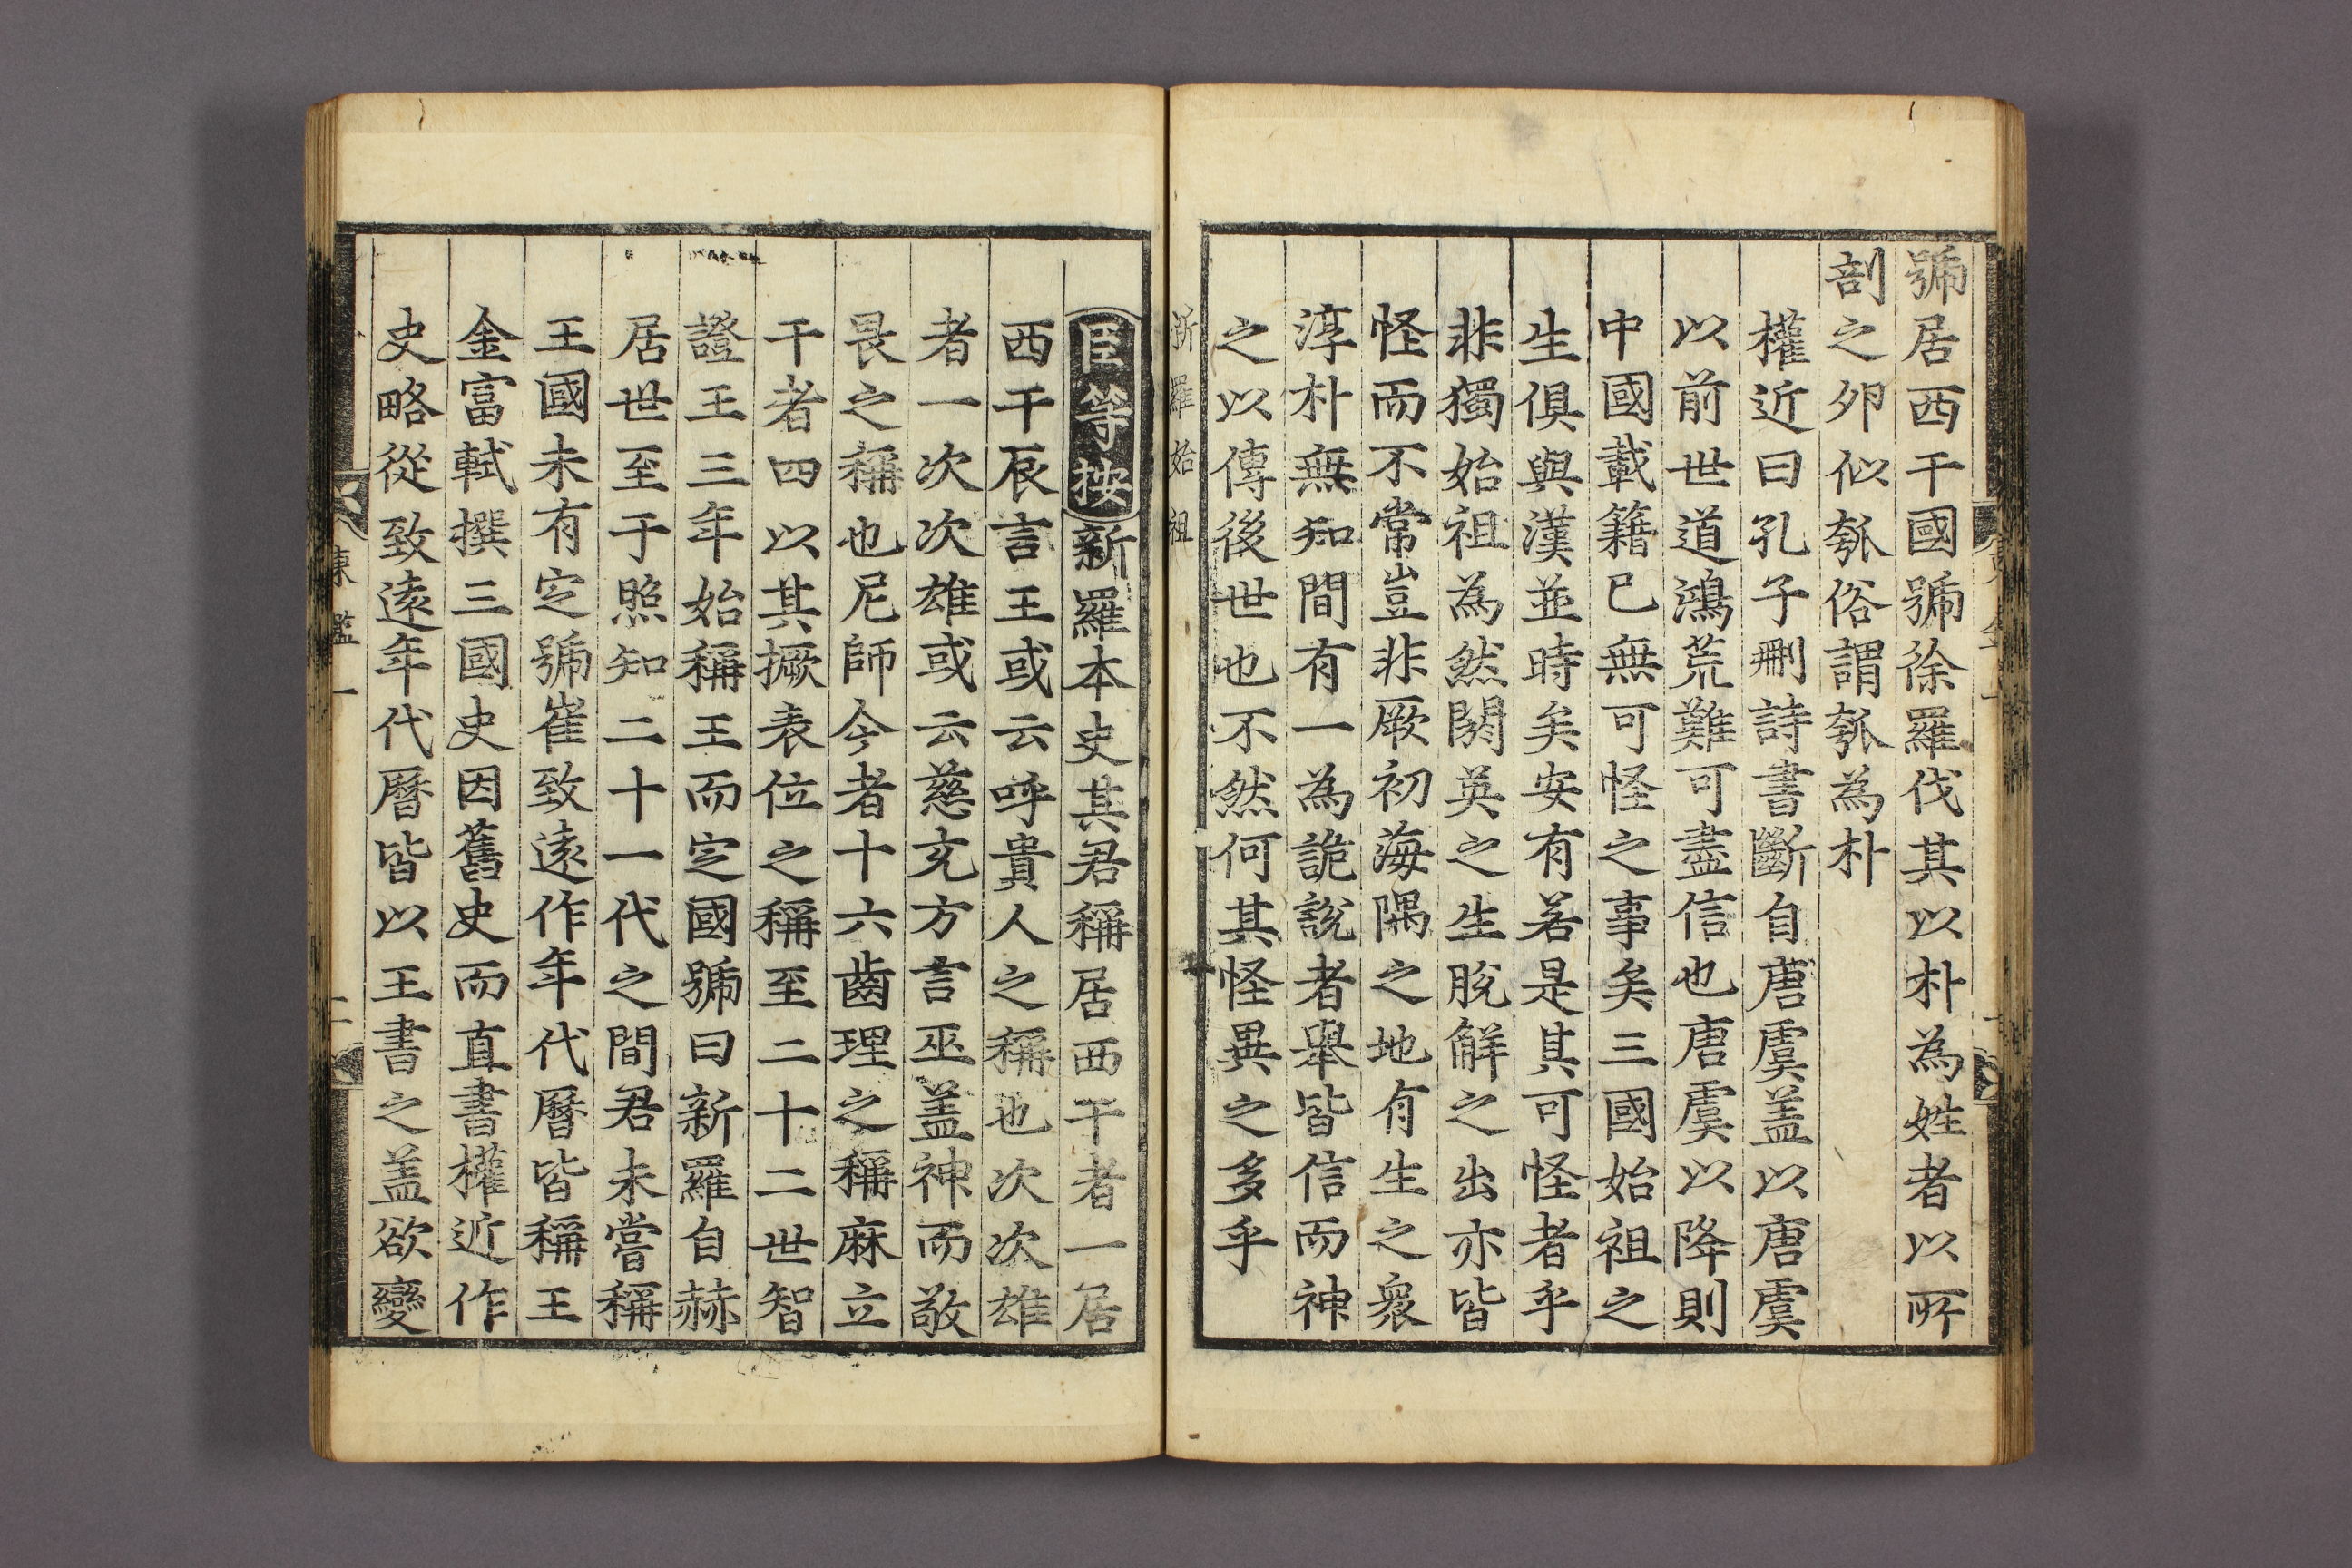 號居西干國號徐羅伐其以朴為姓者以所
剖之夘似瓠俗謂瓠為朴
權近曰孔子刪詩書斷自唐虞盖以唐虞
以前世道鴻荒難可盡信也唐虞以降則
中國載籍已無可怪之事矣三國始祖之
生俱與漢並時矣安有若是其可怪者乎
非獨始祖為然閼英之生脫解之出亦皆
怪而不常豈非厥初海隅之地有生之衆
淳朴無知間有一為詭說者舉皆信而神
之以傳後世也不然何其怪異之多乎
新羅始祖
臣等按新羅本史其君稱居西干者一居
西干辰言王或云呼貴人之稱也次次雄
者一次次雄或云慈充方言巫盖神而敬
畏之稱也尼師今者十六齒理之稱麻立
干者四以其撅表位之稱至二十二世智
證王三年始稱王而定國號曰新羅自赫
居世至于照知二十一代之間君未嘗稱
王國未有定號崔致遠作年代曆皆稱王
金富軾撰三國史因舊史而直書權近作
史略從致遠年代曆皆以王書之盖欲變
東鑑一